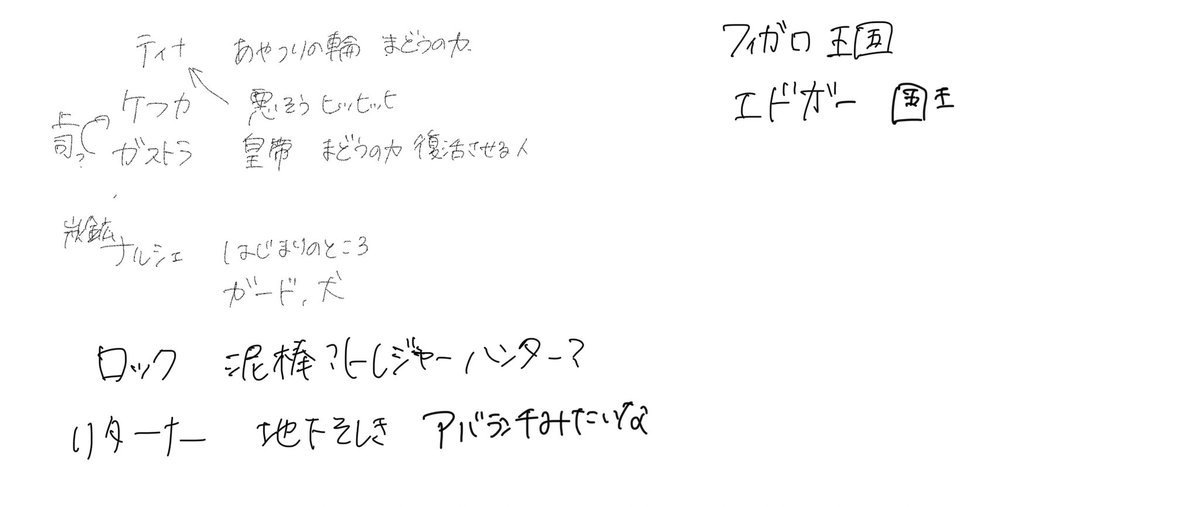 ティナ あやつりの輪 まどうの力
ケフカ 悪そう ヒッヒッヒ
上司?
ガストラ 皇帝 まどうの力 復活させる人
炭鉱
ナルシェ はじまりのところ
ガード、犬
ロック 泥棒?トレジャーハンター?
リターナー 地下そしき アバランチみたいな
フィガロ 王国
エドガー 国王